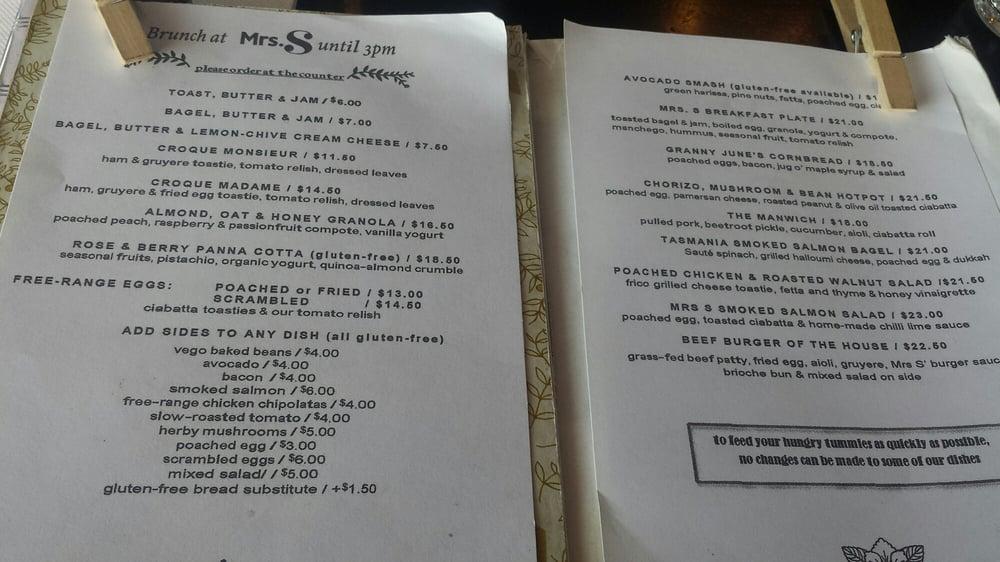 Brunch at Mrs. S until 3pm
please order at the counter
TOAST, BUTTER & JAM / $6.00
BAGEL, BUTTER & JAM / $7.00
BAGEL, BUTTER & LEMON-CHIVE CREAM CHEESE / $7.50
CROQUE MONSIEUR / $11.50
ham & gruyere toastie, tomato relish, dressed leaves
CROQUE MADAME / $14.50
ham, gruyere & fried egg toastie, tomato relish, dressed leaves
ALMOND, OAT & HONEY GRANOLA / $16.50
poached peach, raspberry & passionfruit compote, vanilla yogurt
ROSE & BERRY PANNA COTTA (gluten-free) / $18.50
seasonal fruits, pistachio, organic yogurt, quinoa-almond crumble
FREE-RANGE EGGS: POACHED or FRIED / $13.00
SCRAMBLED / $14.50
ciabatta toasties & our tomato relish
ADD SIDES TO ANY DISH (all gluten-free)
vego baked beans / $4.00
avocado / $4.00
bacon / $4.00
smoked salmon / $6.00
free-range chicken chipolatas / $4.00
slow-roasted tomato / $4.00
herby mushrooms / $5.00
poached egg / $3.00
scrambled eggs / $6.00
mixed salad/ $5.00
gluten-free bread substitute / +$1.50
AVOCADO SMASH (gluten-free available) / $1
green harissa, pine nuts, fetta, poached egg,
MRS. S BREAKFAST PLATE / $21.00
toasted bagel & jam, boiled egg, granola, yogurt & compote,
manchego, hummus, seasonal fruit, tomato relish
GRANNY JUNE'S CORNBREAD / $18.50
poached eggs, bacon, jug o' maple syrup & salad
CHORIZO, MUSHROOM & BEAN HOTPOT / $21.50
poached egg, pamersan cheese, roasted peanut & olive oil toasted ciabatta
THE MANWICH / $18.00
pulled pork, beetroot pickle, cucumber, aioli, ciabatta roll
TASMANIA SMOKED SALMON BAGEL / $21.00
Sauté spinach, grilled halloumi cheese, poached egg & dukkah
POACHED CHICKEN & ROASTED WALNUT SALAD /$21.50
frico grilled cheese toastie, fetta and thyme & honey vinaigrette
MRS S SMOKED SALMON SALAD / $23.00
poached egg, toasted ciabatta & home-made chilli lime sauce
BEEF BURGER OF THE HOUSE / $22.50
grass-fed beef patty, fried egg, aioli, gruyere, Mrs S' burger sauc
brioche bun & mixed salad on side
to feed your hungry tummies as quickly as possible,
no changes can be made to some of our dishes